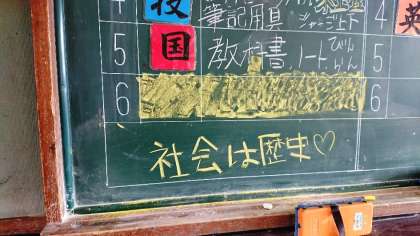 4 役 筆記用具 ジャージ上下 4 英
5 国 教科書、ノート 5
6 6
社会は歴史♡